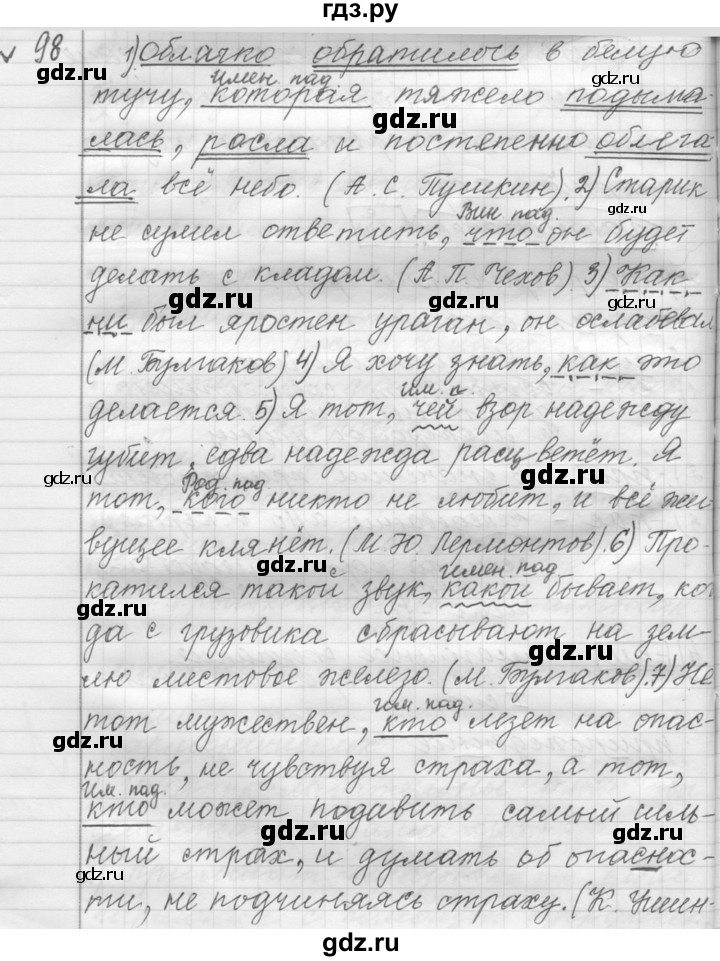 гдз.ру
98 1) Облачко обратилочь в белую
имен. пад.
тучу, которая тяжело подыма-
gdz.ru
лась, росла и постепенно облега-
gdz.ru gdz.ru
ла всё небо. (А. С. Пушкин). 2) Старик
gdz.ru
Вин. пад.
не сумел ответить, что он будет
gdz.ru
делать с кладом. (А. П. Чехов) 3) Как
gdz.ru gdz.ru
ни был яростен ураган, он ослабевал
(М. Булгаков) 4) Я хочу знать, как это
gdz.ru
им. п.
делается. 5) Я тот, чей взор надежду
губит, едва надежда расцветёт. Я
gdz.ru gdz.ru
Род. пад.
тот, кого никто не любит, и всё жи-
gdz.ru
вущее клянёт. (М. Ю. Лермонтов). 6) Про-
gdz.ru
имен. пад.
катился такой звук, какой бывает, ко
gdz.ru
да с грузовика сбрасывают на зем-
gdz.ru
лю листовое железо. (М. Булгаков). 7) Не
gdz.ru
им. пад.
тот мужествен, кто лезет на опас-
gdz.ru
ность, не чувствуя страха, а тот,
gdz.ru
Им. пад.
кто может подавить самый силь-
gdz.ru gdz.ru
ный страх, и думать об опаснос-
gdz.ru gdz.ru
ти, не подчиняясь страху. (К. Ушин-
gdz.ru
gdz.ru